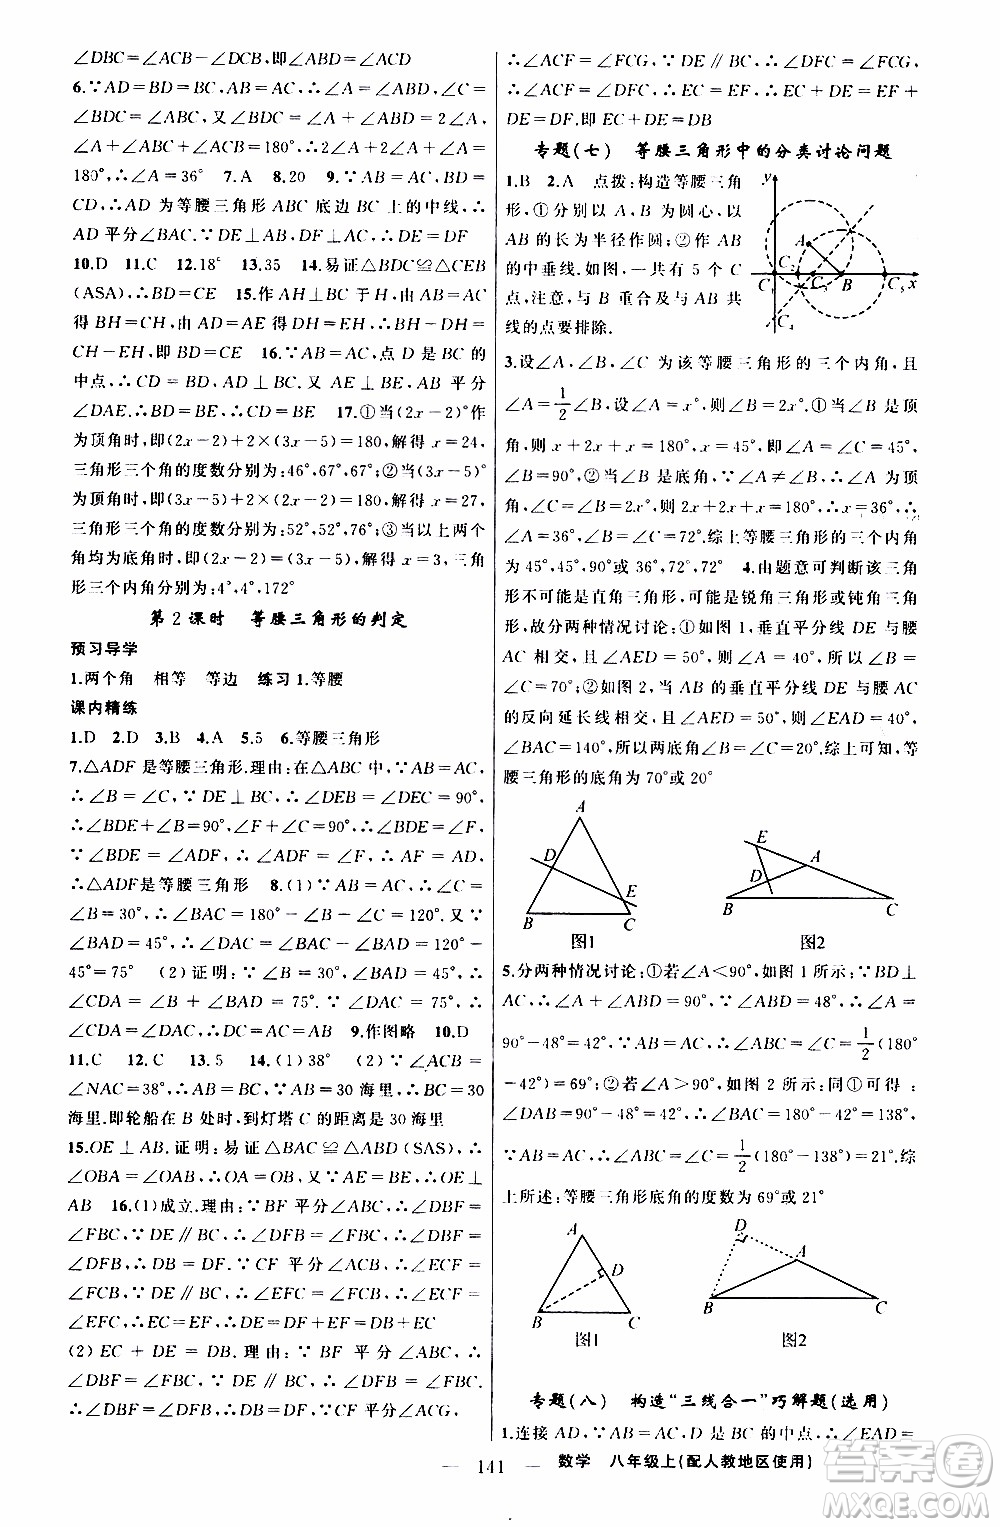 ∠DBC=∠ACB-∠BDC,即∠ABD=∠ACD
6.∵AD=BD=BC,AB=AC,∴∠A=∠ABD,
∠BDC=∠ABC,又∠BDC=2∠A,∴∠ABC=2
∠A,∠A+∠ABC+∠ACB=180°,∴5∠A=
180°,∴∠A=36° 7.A 8.20 9.∵AB=AC,
∴CD,∴AD 为等腰三角形 ABC 底边 BC 上的中线,∴
AD 平分∠BAC.∵DE⊥AB,DF⊥AC,∴DE=DF
10.D 11.C 12.18° 13.35 14.易证△BDC≌△CEB
(ASA),∴BD=CE 15.作 AH⊥BC 于 H,由 AB=AC
得 BH=CH,由 AD=AE 得 DH=EH,∴BH-DH=
CH-EH,即 BD=CE 16.∵AB=AC,点 D 是 BC 的
中点,∴CD=BD,AD⊥BC.又 AE⊥BE,AB 平分
∠DAE.∴BD=BE,∴CD=BE 17.①当(2x-2)°作
为顶角时,即(2x-2)+2×(3x-5)=180,解得 x=24,
三角形三个角的度数分别为:46°,67°,67°;②当(3x-5)°
为顶角时,(3x-5)+2×(2x-2)=180,解得 x=27,
三角形三个角的度数分别为:52°,52°,76°;③当以上两个
角均为底角时,2x-2=3x-5,解得 x=3,三角
形三个内角分别为:4°,4°,172°
第 2 课时 等腰三角形的判定
预习导学
1.两个角 相等 等边 练习 1.等腰
课内精练
1.D 2.D 3.B 4.A 5.5 6.等腰三角形
7.△ADF 是等腰三角形.理由:在△ABC 中,∵AB=AC,
∴∠B=∠C,∵DE⊥BC,∴∠DEB=∠DEC=90°,
∴∠BDE+∠B=90°,∠F+∠C=90°,∴∠BDE=∠F,
∵∠BDE=∠ADF,∴∠ADF=∠F,∴AF=AD,
∴△ADF是等腰三角形 8.(1)∵AB=AC,∴∠C=
∠B=30°,∴∠BAC=180°-30°-30°=120°.又∵
∠BAD=45°,∴∠DAC=∠BAC-∠BAD=120°-
45°=75° (2)证明:∵∠DAC=75°,∠C=30°,∴
∠CDA=180°-∠C-∠DAC=75°,∴∠DAC=75°,∴
∠CDA=∠DAC,∴DC=AC=AB 9.作图略 10.D
11.C 12.C 13.5 14.(1)38° (2)∵∠ACB=
∠NAC=38°,∴∠BAC=∠ACB,∵AB=30 海里,∴BC=30
海里.即轮船在 B 处时,到灯塔 C 的距离是 30 海里
15.OE⊥AB.证明:易证△BAC≌△ABD(SAS),∴
∠OBA=∠OAB,∴OA=OB,又∵AE=BE,∴OE⊥
AB 16.(1)成立.理由:∵BF 平分∠ABC,∴∠DBF=
∠FBC,∵DE∥BC,∴∠DFB=∠FBC,∴∠DBF=
∠DFB,∴DB=DF.∵CF 平分∠ACB,∴∠ECF=
∠FCB,∵DE∥BC,∴∠EFC=∠FCB,∴∠ECF=
∠EFC,∴EC=EF,∴DE=DF+EF=DB+EC
(2)EC+DE=DB.理由:∵BF 平分∠ABC,∴
∠DBF=∠FBC,∵DE∥BC,∴∠DFB=∠FBC,
∴∠DBF=∠DFB,∴DB=DF,∵CF 平分∠ACG,
∴∠ACF=∠FCG,∵DE∥BC,∴∠DFC=∠FCG,
∴∠ACF=∠DFC,∴EC=EF,∴DE+EC=DE+EF,
DE=DF.即 EC+DE=DB
专题(七) 等腰三角形中的分类讨论问题
1.B 2.A 点拨:构造等腰三角
形,①分别以 A,B 为圆心,以
AB 的长为半径作圆;②作 AB
的中垂线.如图,一共有 5 个 C
点,注意,与 B 重合及与 AB 共
线的点要排除.
y
A
C
C₂
C₃
B
C₅
x
C₄
3.设∠A,∠B,∠C 为该等腰三角形的三个内角,且
∠A=1/2∠B,设∠A=x°,则∠B=2x°.①当∠B 是顶
角,则 x+2x+x=180°,x=45°,∴∠A=∠C=45°,
∠B=90°;②当∠B 是底角,∵∠A≠∠B,∴∠A 为顶
角,∠C=∠B=2x°,则 2x+2x+x=180°,x=36°,∴
∠A=36°,∠B=∠C=72°.综上等腰三角形各内角为
45°,45°,90°或 36°,72°,72° 4.由题意可判断该三角
形不可能是直角三角形,可能是锐角三角形或钝角三角
形,故分两种情况讨论:①如图 1,垂直平分线 DE 与腰
AC 相交,∴∠AED=50°,∴∠A=40°,∴∠B=
∠C=70°;②如图 2,当 AB 的垂直平分线 DE 与腰 AC
的反向延长线相交,∵∠AED=50°,∴∠EAD=40°,
∠BAC=140°,所以∠B=∠C=20°.综上可知,等
腰三角形的底角为 70°或 20°
A
D
E
B
C
图1
E
A
D
B
C
图2
5.分两种情况讨论:①若∠A<90°,如图 1 所示:∵BD⊥
AC,∴∠A+∠ABD=90°,∵∠ABD=48°,∴∠A=
90°-48°=42°,∵AB=AC,∴∠ABC=∠C=1/2(180°
-42°)=69°;②若∠A>90°,如图 2 所示:同①可得:
∠DAB=90°-48°=42°,∴∠BAC=180°-42°=138°,
∵AB=AC,∴∠ABC=∠C=1/2(180°-138°)=21°,综
上所述:等腰三角形底角的度数为 69°或 21°
A
D
B
C
图1
D
A
B
C
图2
专题(八) 构造“三线合一”巧解题(选用)
1.连接 AD,∵AB=AC,D 是 BC 的中点,∴∠EAD=
— 141 —
数学 八年级上(配人教地区使用)
答案圈
MXQE.COM